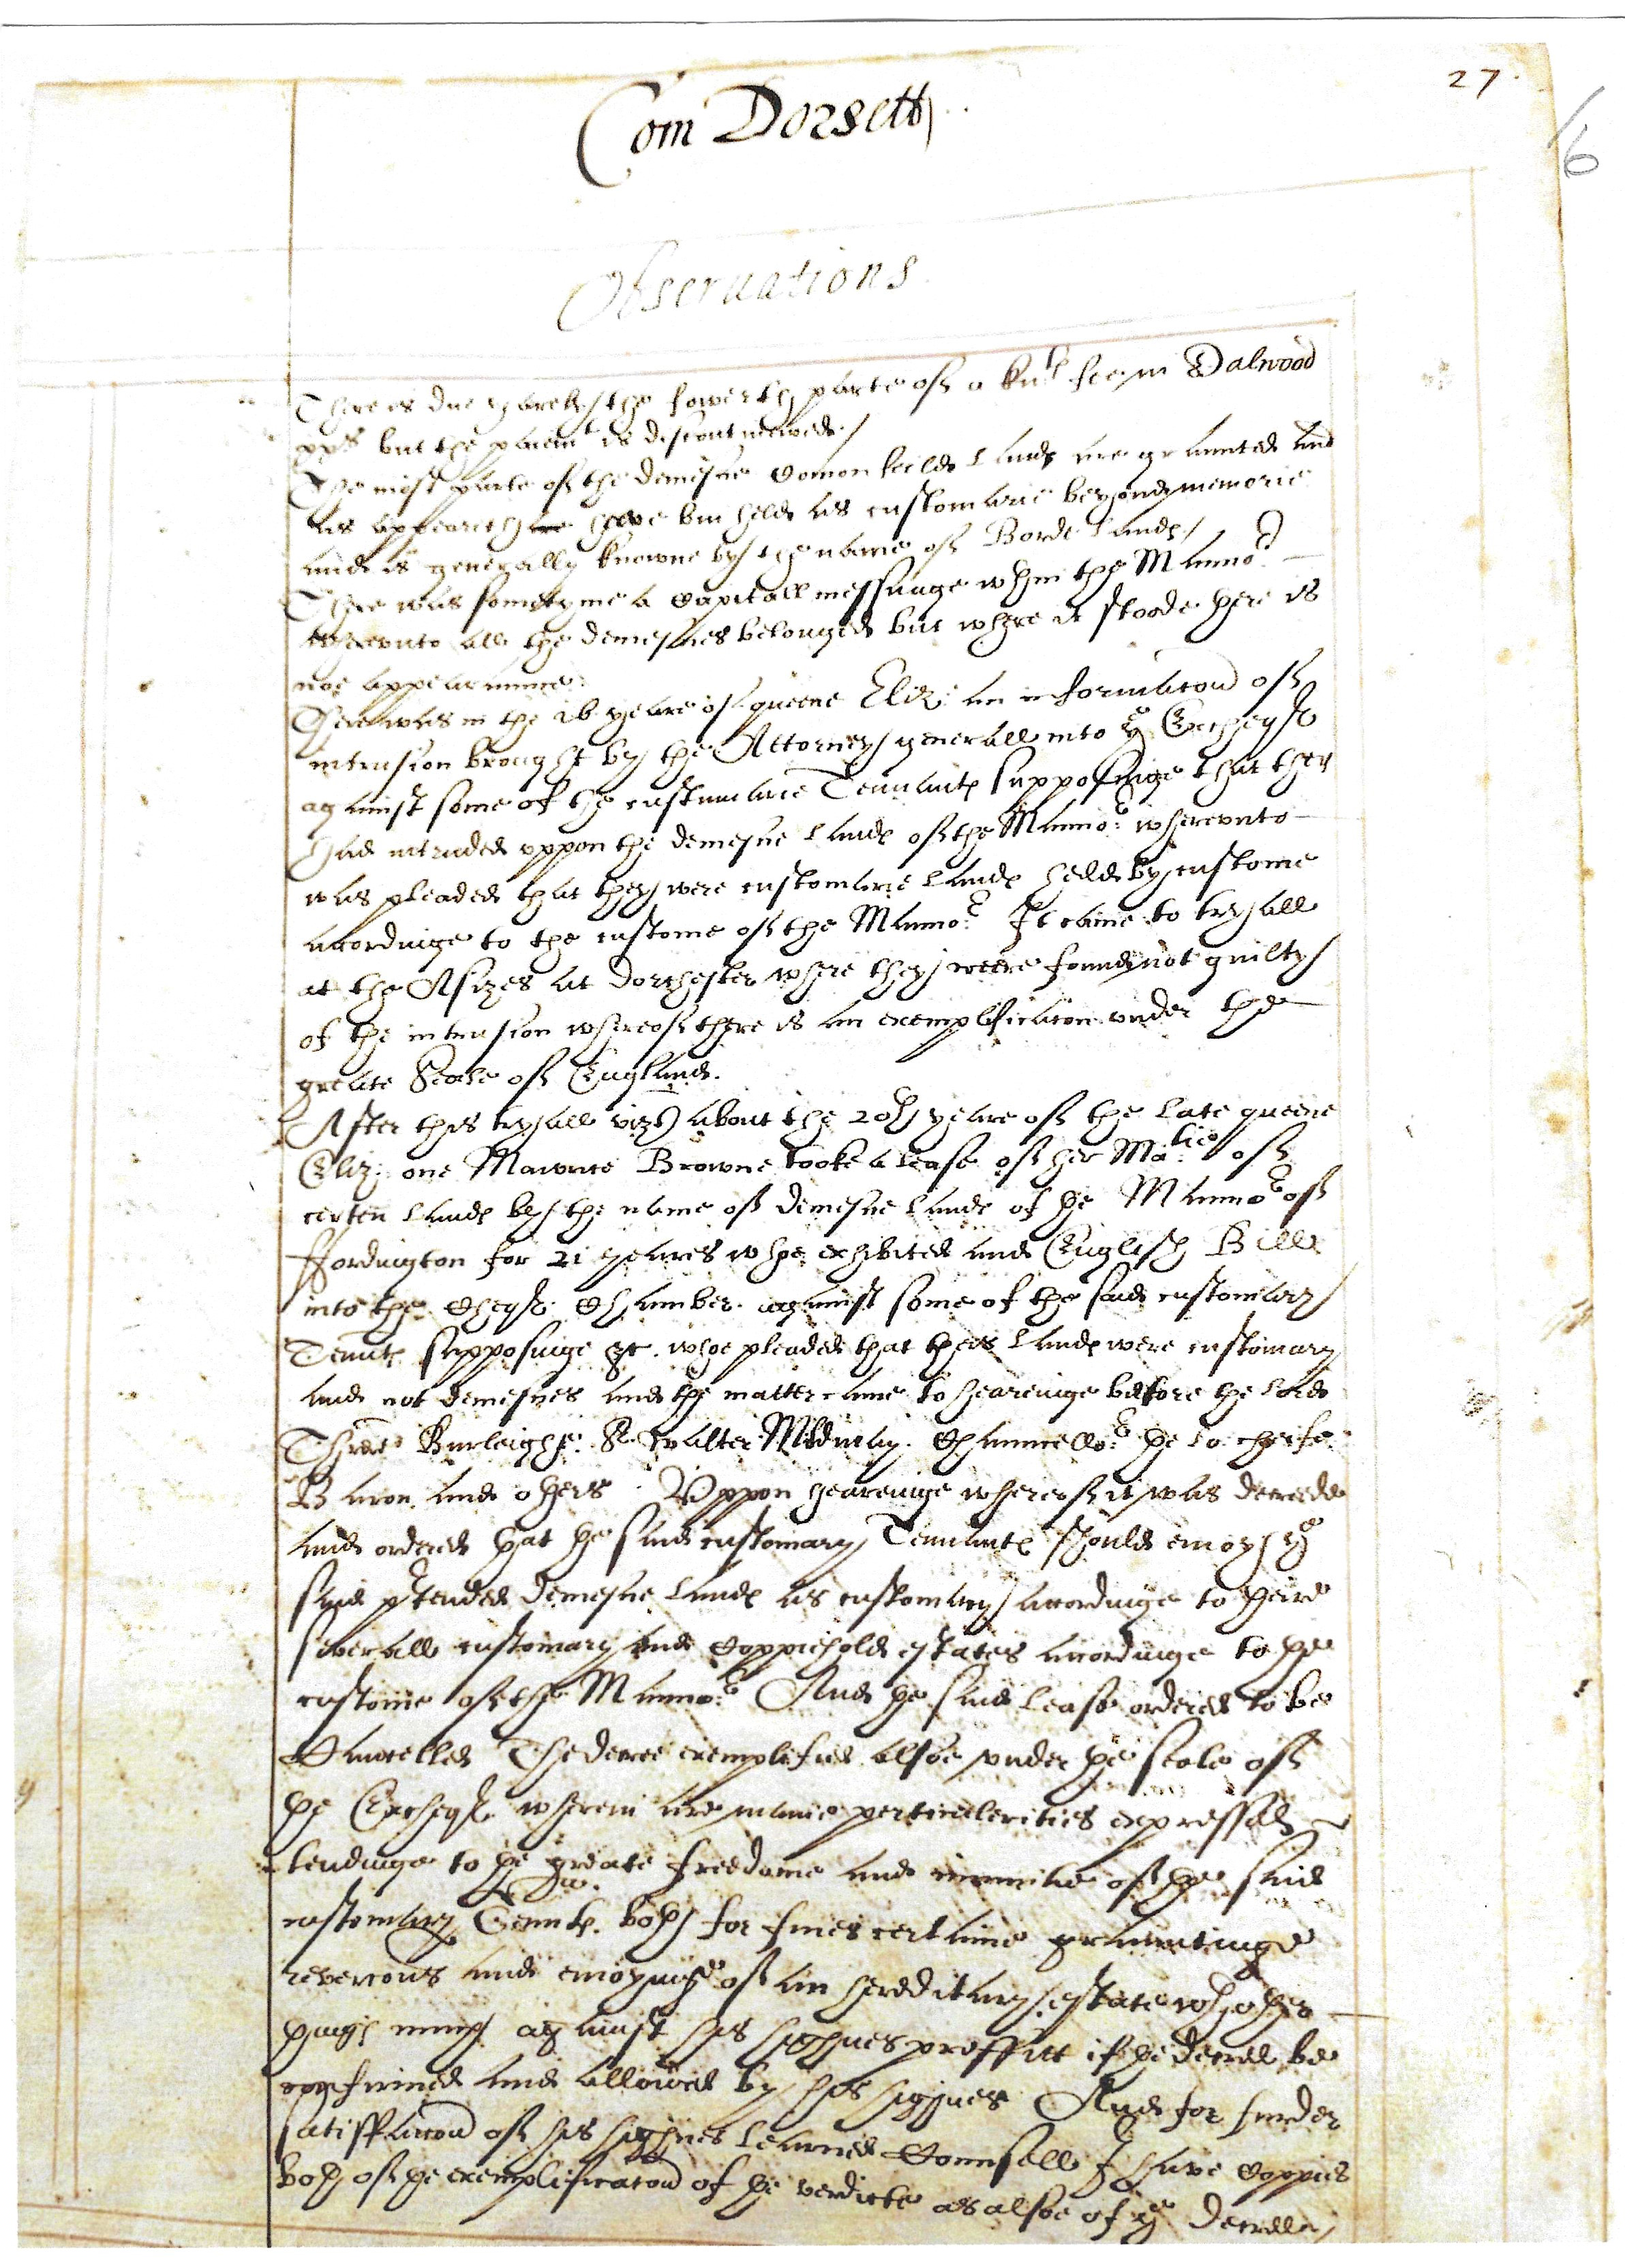 27
6
Com Dorsett
Observations
There is due yarely the fowerth parte of a knts fee in Dalwood
but the paiemt is discontinewed /
The most parte of the demesne comon feilde Landes are graunted and
as appeareth have bin helde as customarie beyond memorie
and is generally knowne by the name of Borde Landes /
There was sometyme a Capitall messuage wthin the Mannor
wherevnto all the demesnes belonged but where it stoode here is
noe appearaunce:
There was in the 16 yeare of queene Eliz: an informacon of
intrusion brought by the Attorney generall into ye Excheqr
against some of the custumarie Tenuants supposinge that they
had intruded vppon the demesne Landes of the Mannor: wherevnto
was pleaded that they were customarie Landes helde by custome
acordinge to the custome of the Mannor: It came to tryall
at the Asizes at Dorchester where they weere found not guilty
of the intrusion whereof there is an exemplificacon vnder the
greate Seale of England.
After this tryall vizt about the 20th yeare of the late queene
Eliz: one Mawrice Browne tooke a lease of her Matie of
certen Landes by the name of demesne Lands of the Mannor of
ffordington for 21 yeares whoe exhibited and English Bill
into the Cheqr Chamber against some of the said customary
Tennts supposinge &c. whoe pleaded that theis Landes were customary
and not demesnes and the matter came to heareinge before the Lord
Threr Burleighe: Sr Walter Mildmay. Chauncellor: the Lo: cheife
Baron and others. Vppon heareinge whereof it was decreed
and ordered that the said customary Tennants should enioy ye
said ptended demesne Landes as customary acordinge to their
severall customary and Coppiehold estates acordinge to the
custome of the Mannor: And the said lease ordered to be
Cancelled The decree exemplified alsoe vnder the seale of
the Excheqr wherein are manie perticulerities expressed
tendinge to the greate freedome and immunitie of the said
customary Tennts. both for fines certaine grauntinge
revercons and enioyinge of an heredditary estate wth other
thinges much against his highnes proffitt if the decree be
confirmed and allowed by his highnes And for furder
satisffaccon of his highnes learned Counsell I have Coppies
both of the exemplificacon of the verdicte as alsoe of ye decree /